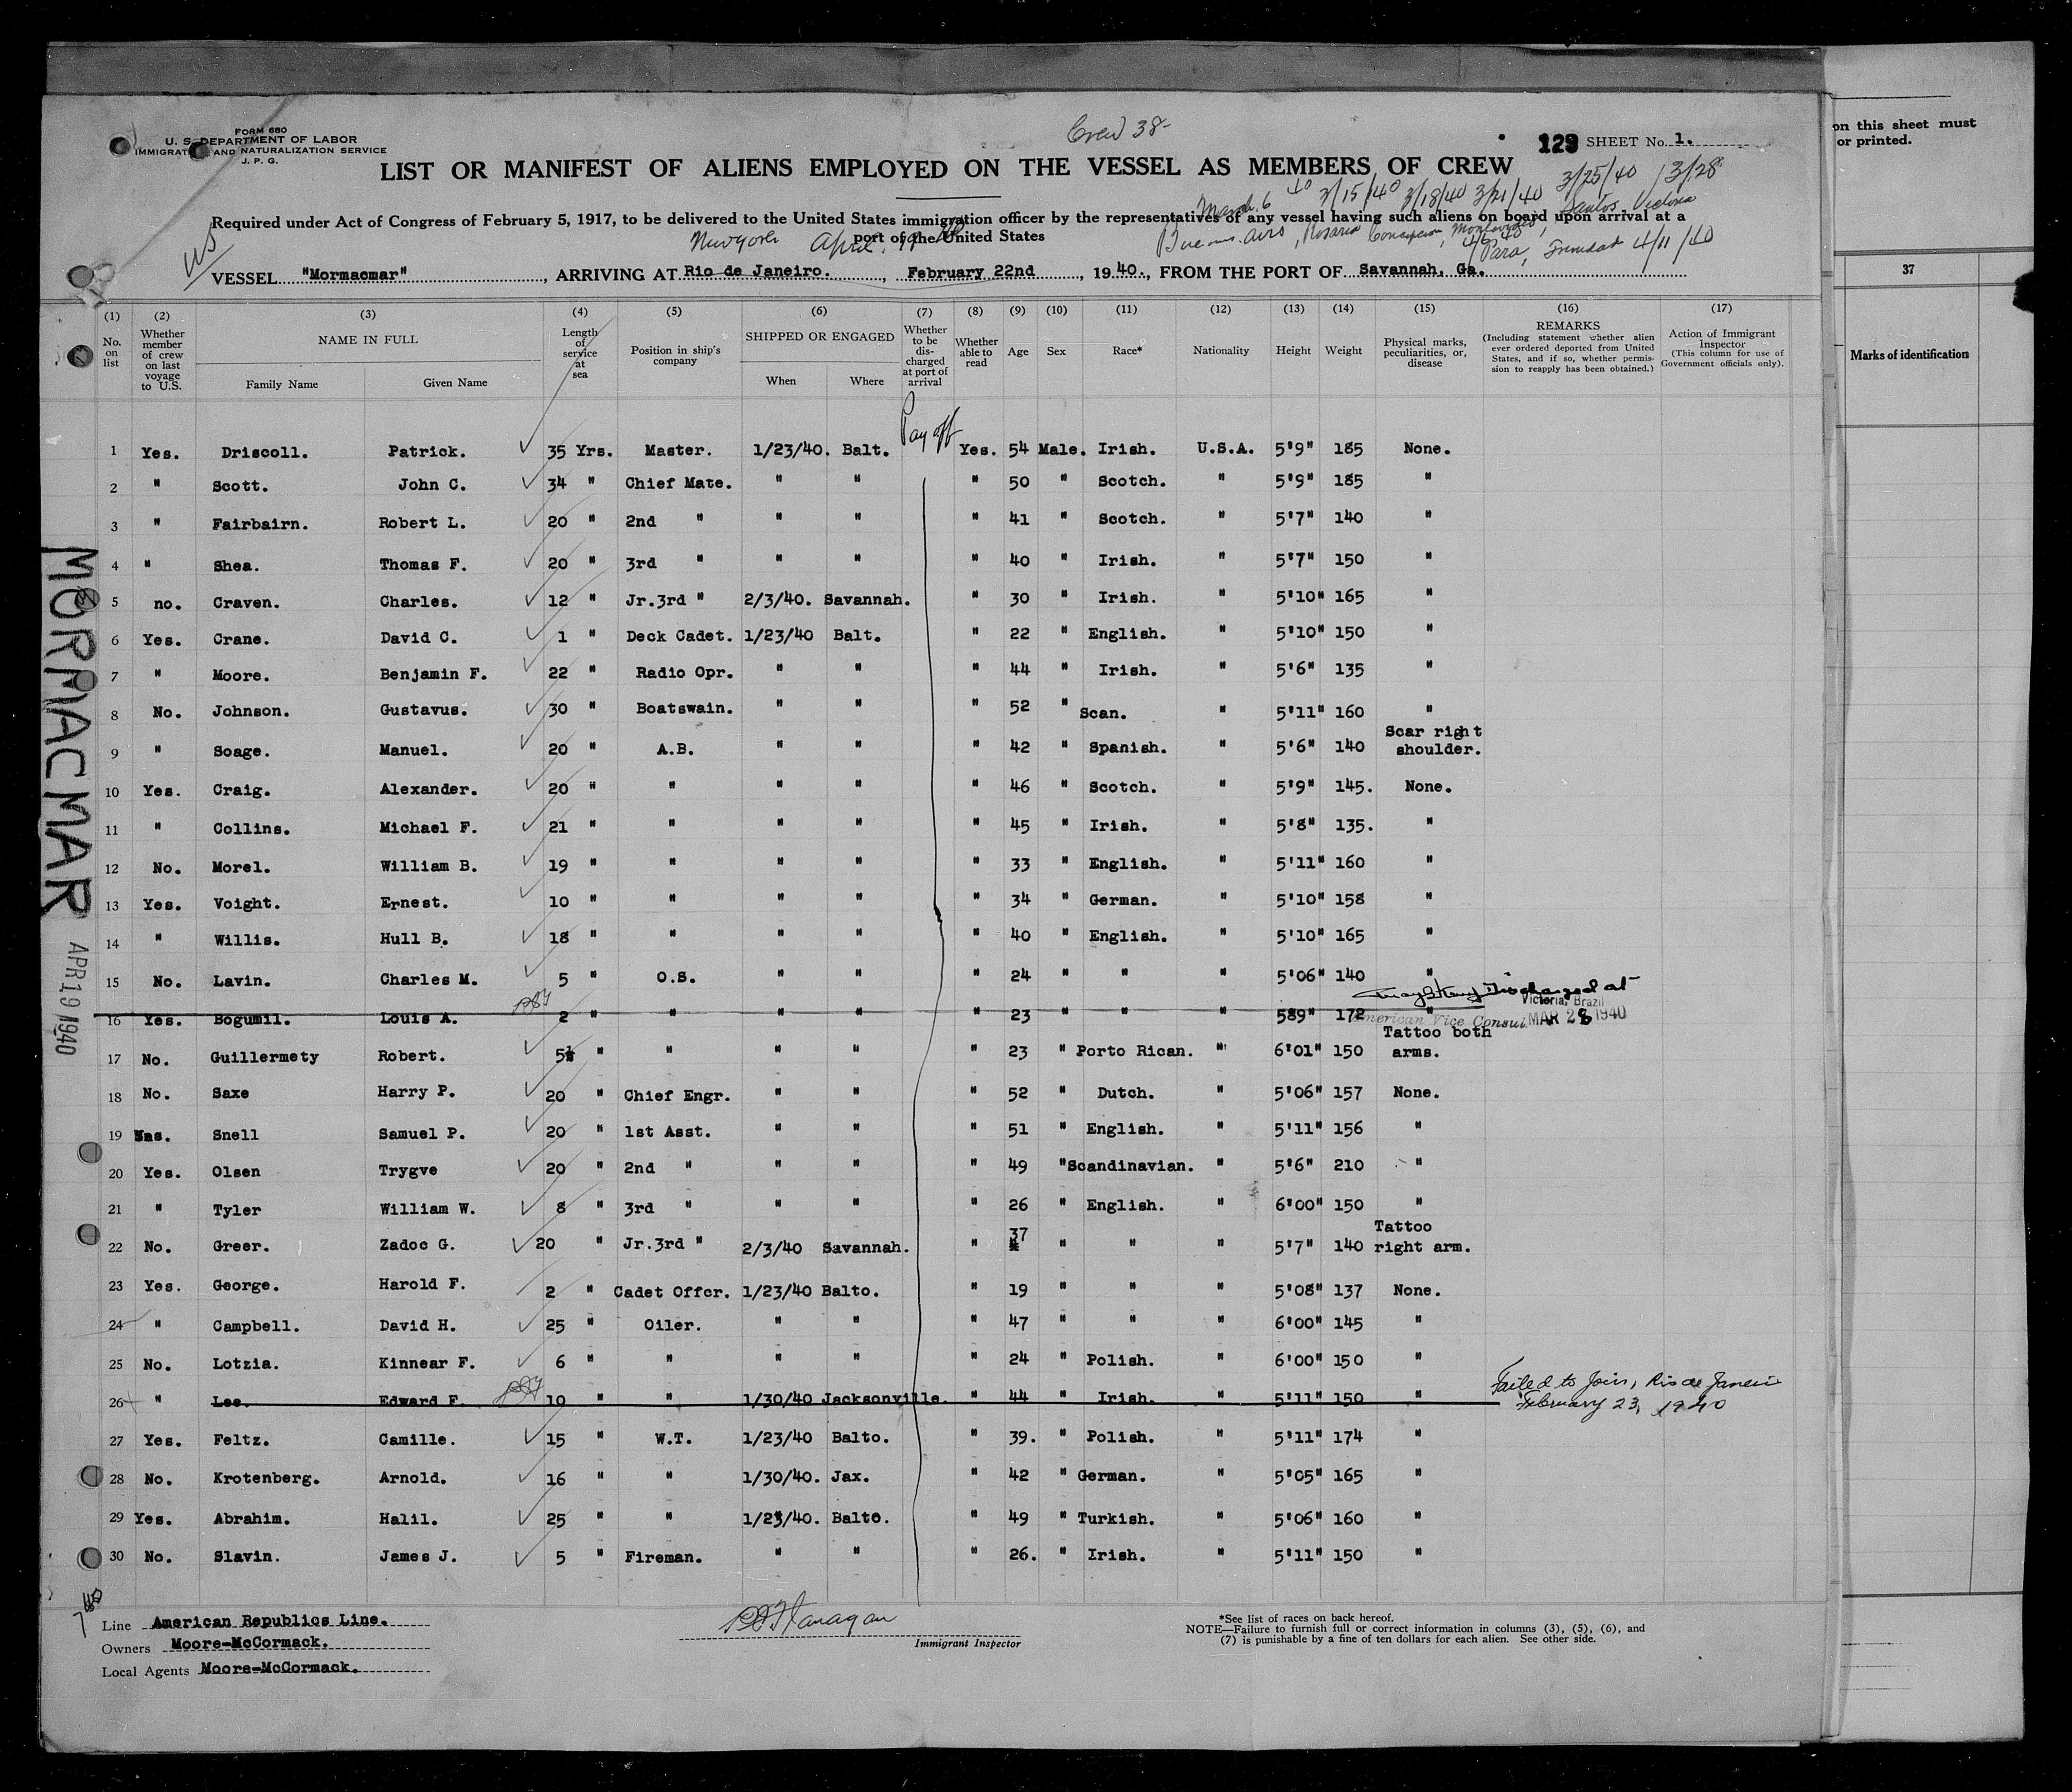 FORM 680
U. S. DEPARTMENT OF LABOR
IMMIGRATION AND NATURALIZATION SERVICE
J. P. G.
Crew 38-
129 SHEET No. 1.
LIST OR MANIFEST OF ALIENS EMPLOYED ON THE VESSEL AS MEMBERS OF CREW
March 6 40 3/15/40 3/18/40 3/21/40 3/25/40 / 3/28
Required under Act of Congress of February 5, 1917, to be delivered to the United States immigration officer by the representatives of any vessel having such aliens on board upon arrival at a
port of the United States
New York April 19 40
Buenos Aires, Rosario Concepcion, Montevideo, Santos Victoria
4/6/40 Para, Trinidad 4/11/40
VESSEL "Mormacmar", ARRIVING AT Rio de Janeiro., February 22nd, 1940., FROM THE PORT OF Savannah, Ga.
(1) No. on list
(2) Whether member of crew on last voyage to U.S.
(3) NAME IN FULL Family Name Given Name
(4) Length of service at sea
(5) Position in ship's company
(6) SHIPPED OR ENGAGED When Where
(7) Whether to be discharged at port of arrival
(8) Whether able to read
(9) Age
(10) Sex
(11) Race*
(12) Nationality
(13) Height
(14) Weight
(15) Physical marks, peculiarities, or, disease
(16) REMARKS (Including statement whether alien ever ordered deported from United States, and if so, whether permission to reapply has been obtained.)
(17) Action of Immigrant Inspector (This column for use of Government officials only).
Pay off
1 Yes. Driscoll. Patrick. 35 Yrs. Master. 1/23/40. Balt. Yes. 54 Male. Irish. U.S.A. 5'9" 185 None.
2 " Scott. John C. 34 " Chief Mate. " " " 50 " Scotch. " 5'9" 185 "
3 " Fairbairn. Robert L. 20 " 2nd " " " " 41 " Scotch. " 5'7" 140 "
4 " Shea. Thomas F. 20 " 3rd " " " " 40 " Irish. " 5'7" 150 "
5 no. Craven. Charles. 12 " Jr.3rd " 2/3/40. Savannah. " 30 " Irish. " 5'10" 165 "
6 Yes. Crane. David C. 1 " Deck Cadet. 1/23/40 Balt. " 22 " English. " 5'10" 150 "
7 " Moore. Benjamin F. 22 " Radio Opr. " " " 44 " Irish. " 5'6" 135 "
8 No. Johnson. Gustavus. 30 " Boatswain. " " " 52 " Scan. " 5'11" 160 "
9 " Soage. Manuel. 20 " A.B. " " " 42 " Spanish. " 5'6" 140 Scar right shoulder.
10 Yes. Craig. Alexander. 20 " " " " " 46 " Scotch. " 5'9" 145. None.
11 " Collins. Michael F. 21 " " " " " 45 " Irish. " 5'8" 135. "
12 No. Morel. William B. 19 " " " " " 33 " English. " 5'11" 160 "
13 Yes. Voight. Ernest. 10 " " " " " 34 " German. " 5'10" 158 "
14 " Willis. Hull B. 18 " " " " " 40 " English. " 5'10" 165 "
15 No. Lavin. Charles M. 5 " O.S. " " " 24 " " " 5'06" 140 "
Discharged at
Victoria, Brazil
16 Yes. Bogumil. Louis A. 2 " " " " " 23 " " " 589" 172 "
American Vice Consul MAR 28 1940
17 No. Guillermety Robert. 5½ " " " " " 23 " Porto Rican. " 6'01" 150 Tattoo both arms.
18 No. Saxe Harry P. 20 " Chief Engr. " " " 52 " Dutch. " 5'06" 157 None.
19 Snell Samuel P. 20 " 1st Asst. " " " 51 " English. " 5'11" 156 "
20 Yes. Olsen Trygve 20 " 2nd " " " " 49 " Scandinavian. " 5'6" 210 "
21 " Tyler William W. 8 " 3rd " " " " 26 " English. " 6'00" 150 "
22 No. Greer. Zadoc G. 20 " Jr.3rd " 2/3/40 Savannah. " 37 " " " 5'7" 140 Tattoo right arm.
23 Yes. George. Harold F. 2 " Cadet Offcr. 1/23/40 Balto. " 19 " " " 5'08" 137 None.
24 " Campbell. David H. 25 " Oiler. " " " 47 " " " 6'00" 145 "
25 No. Lotzia. Kinnear F. 6 " " " " " 24 " Polish. " 6'00" 150 "
26 " Lee. Edward F. 10 " " 1/30/40 Jacksonville. " 44 " Irish. " 5'11" 150 " Failed to Join, Rio de Janeiro February 23, 1940
27 Yes. Feltz. Camille. 15 " W.T. 1/23/40 Balto. " 39. " Polish. " 5'11" 174 "
28 No. Krotenberg. Arnold. 16 " " 1/30/40. Jax. " 42 " German. " 5'05" 165 "
29 Yes. Abrahim. Halil. 25 " " 1/23/40. Balto. " 49 " Turkish. " 5'06" 160 "
30 No. Slavin. James J. 5 " Fireman. " " " 26. " Irish. " 5'11" 150 "
Line American Republics Line.
Owners Moore-McCormack.
Local Agents Moore-McCormack.
Flanagan
Immigrant Inspector
*See list of races on back hereof.
NOTE—Failure to furnish full or correct information in columns (3), (5), (6), and
(7) is punishable by a fine of ten dollars for each alien. See other side.
MORMACMAR
APR 19 1940
on this sheet must
or printed.
37
Marks of identification